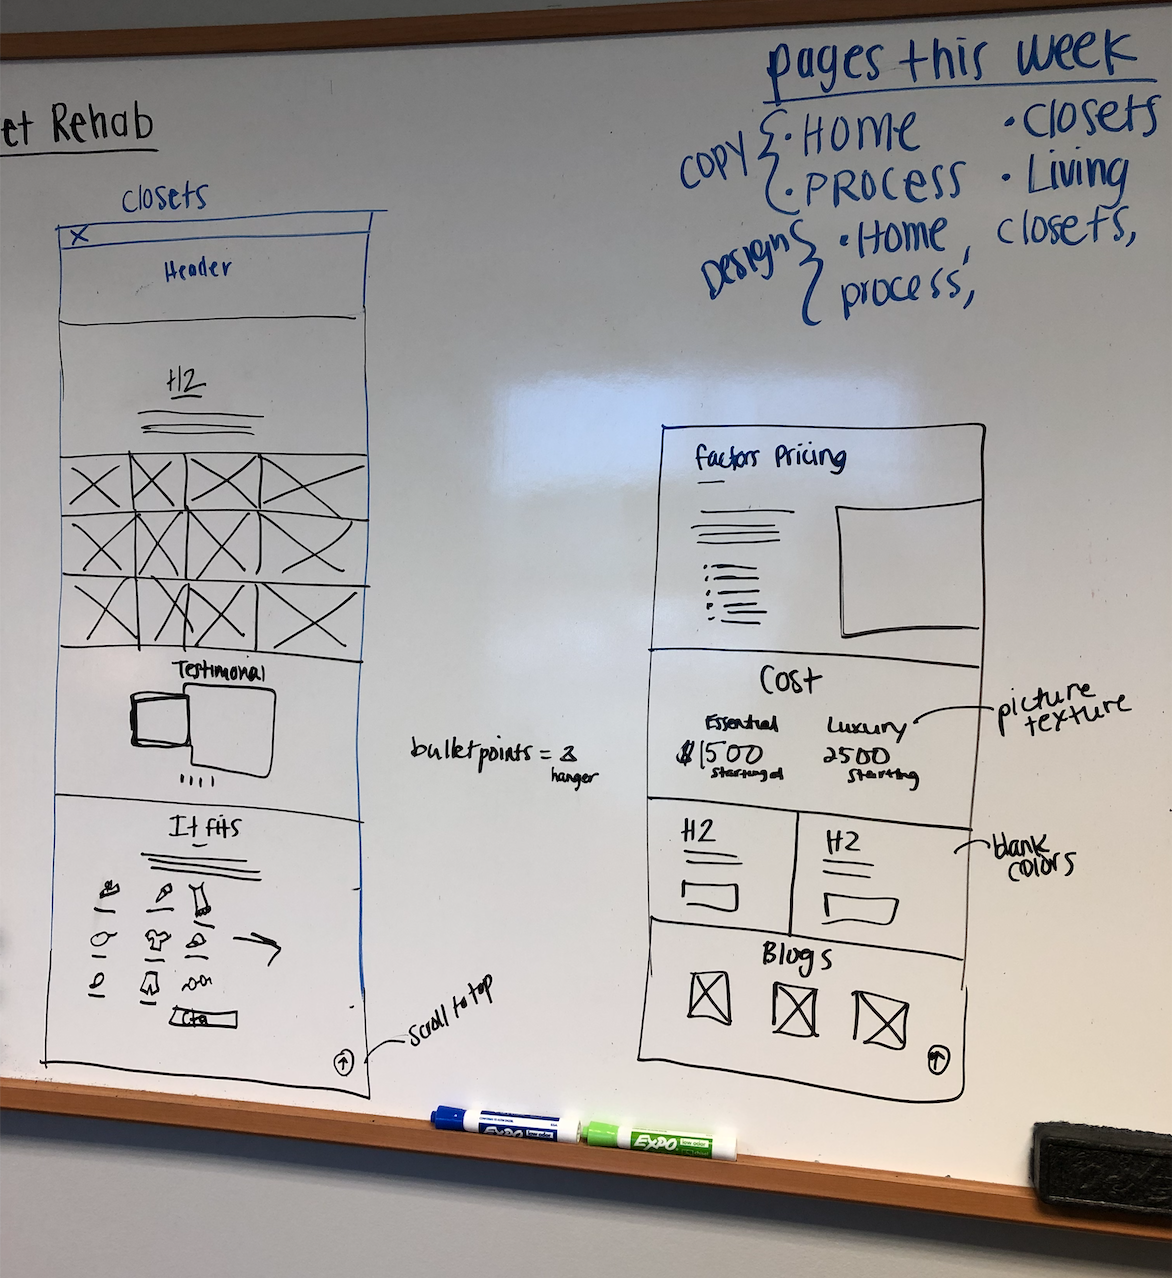 et Rehab
pages this week
COPY
• HOME
• Closets
• PROCESS
• Living
Designs
• Home, closets,
process,
closets
X
Header
H2
Testimonal
It fits
Cta
scroll to top
bullet points =
hanger
Factors Pricing
Cost
Essential
Luxury
$1500
2500
Starting at
Starting
picture
texture
H2
H2
blank
colors
Blogs
EXPO
EXPO
low odor